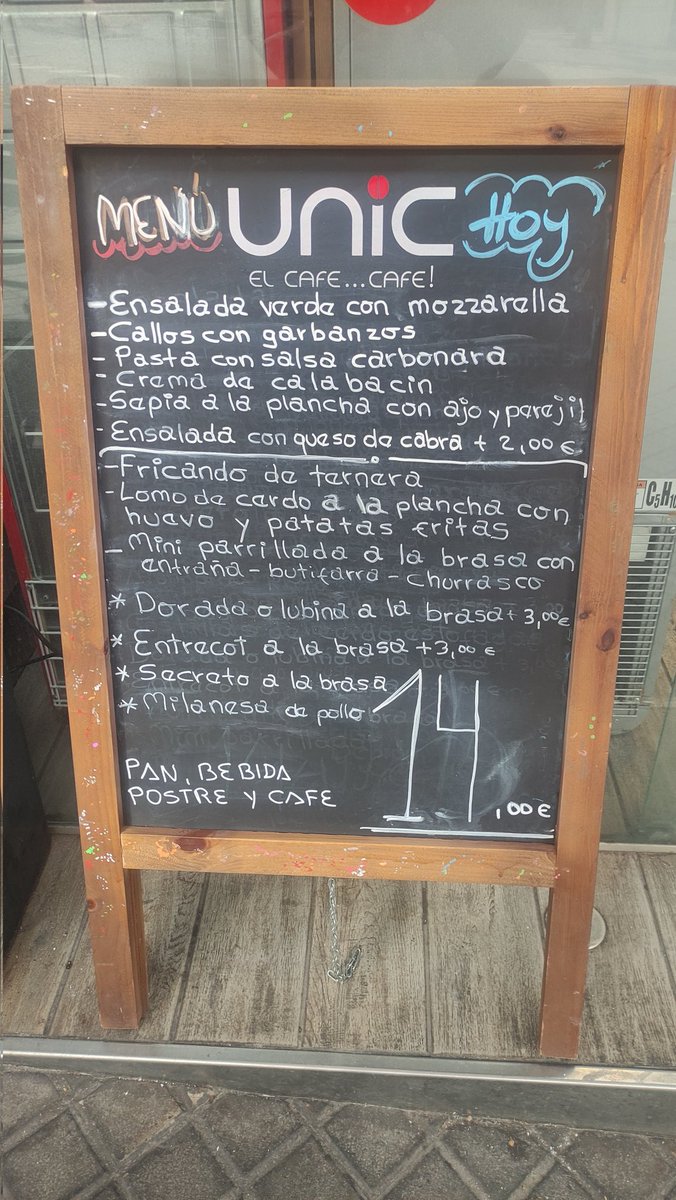 MENÚ UNIC Hoy
EL CAFE...CAFE!
- Ensalada verde con mozzarella
- Callos con garbanzos
- Pasta con salsa carbonara
- Crema de calabacin
- Sepia a la plancha con ajo y perejil
- Ensalada con queso de cabra + 2,00 €
- Fricando de ternera
- Lomo de cerdo a la plancha con
huevo y patatas fritas
- Mini parrillada a la brasa con
entraña - butifarra - churrasco
* Dorada o lubina a la brasa + 3,00 €
* Entrecot a la brasa + 3,00 €
* Secreto a la brasa
* Milanesa de pollo
14,00 €
PAN, BEBIDA
POSTRE Y CAFE